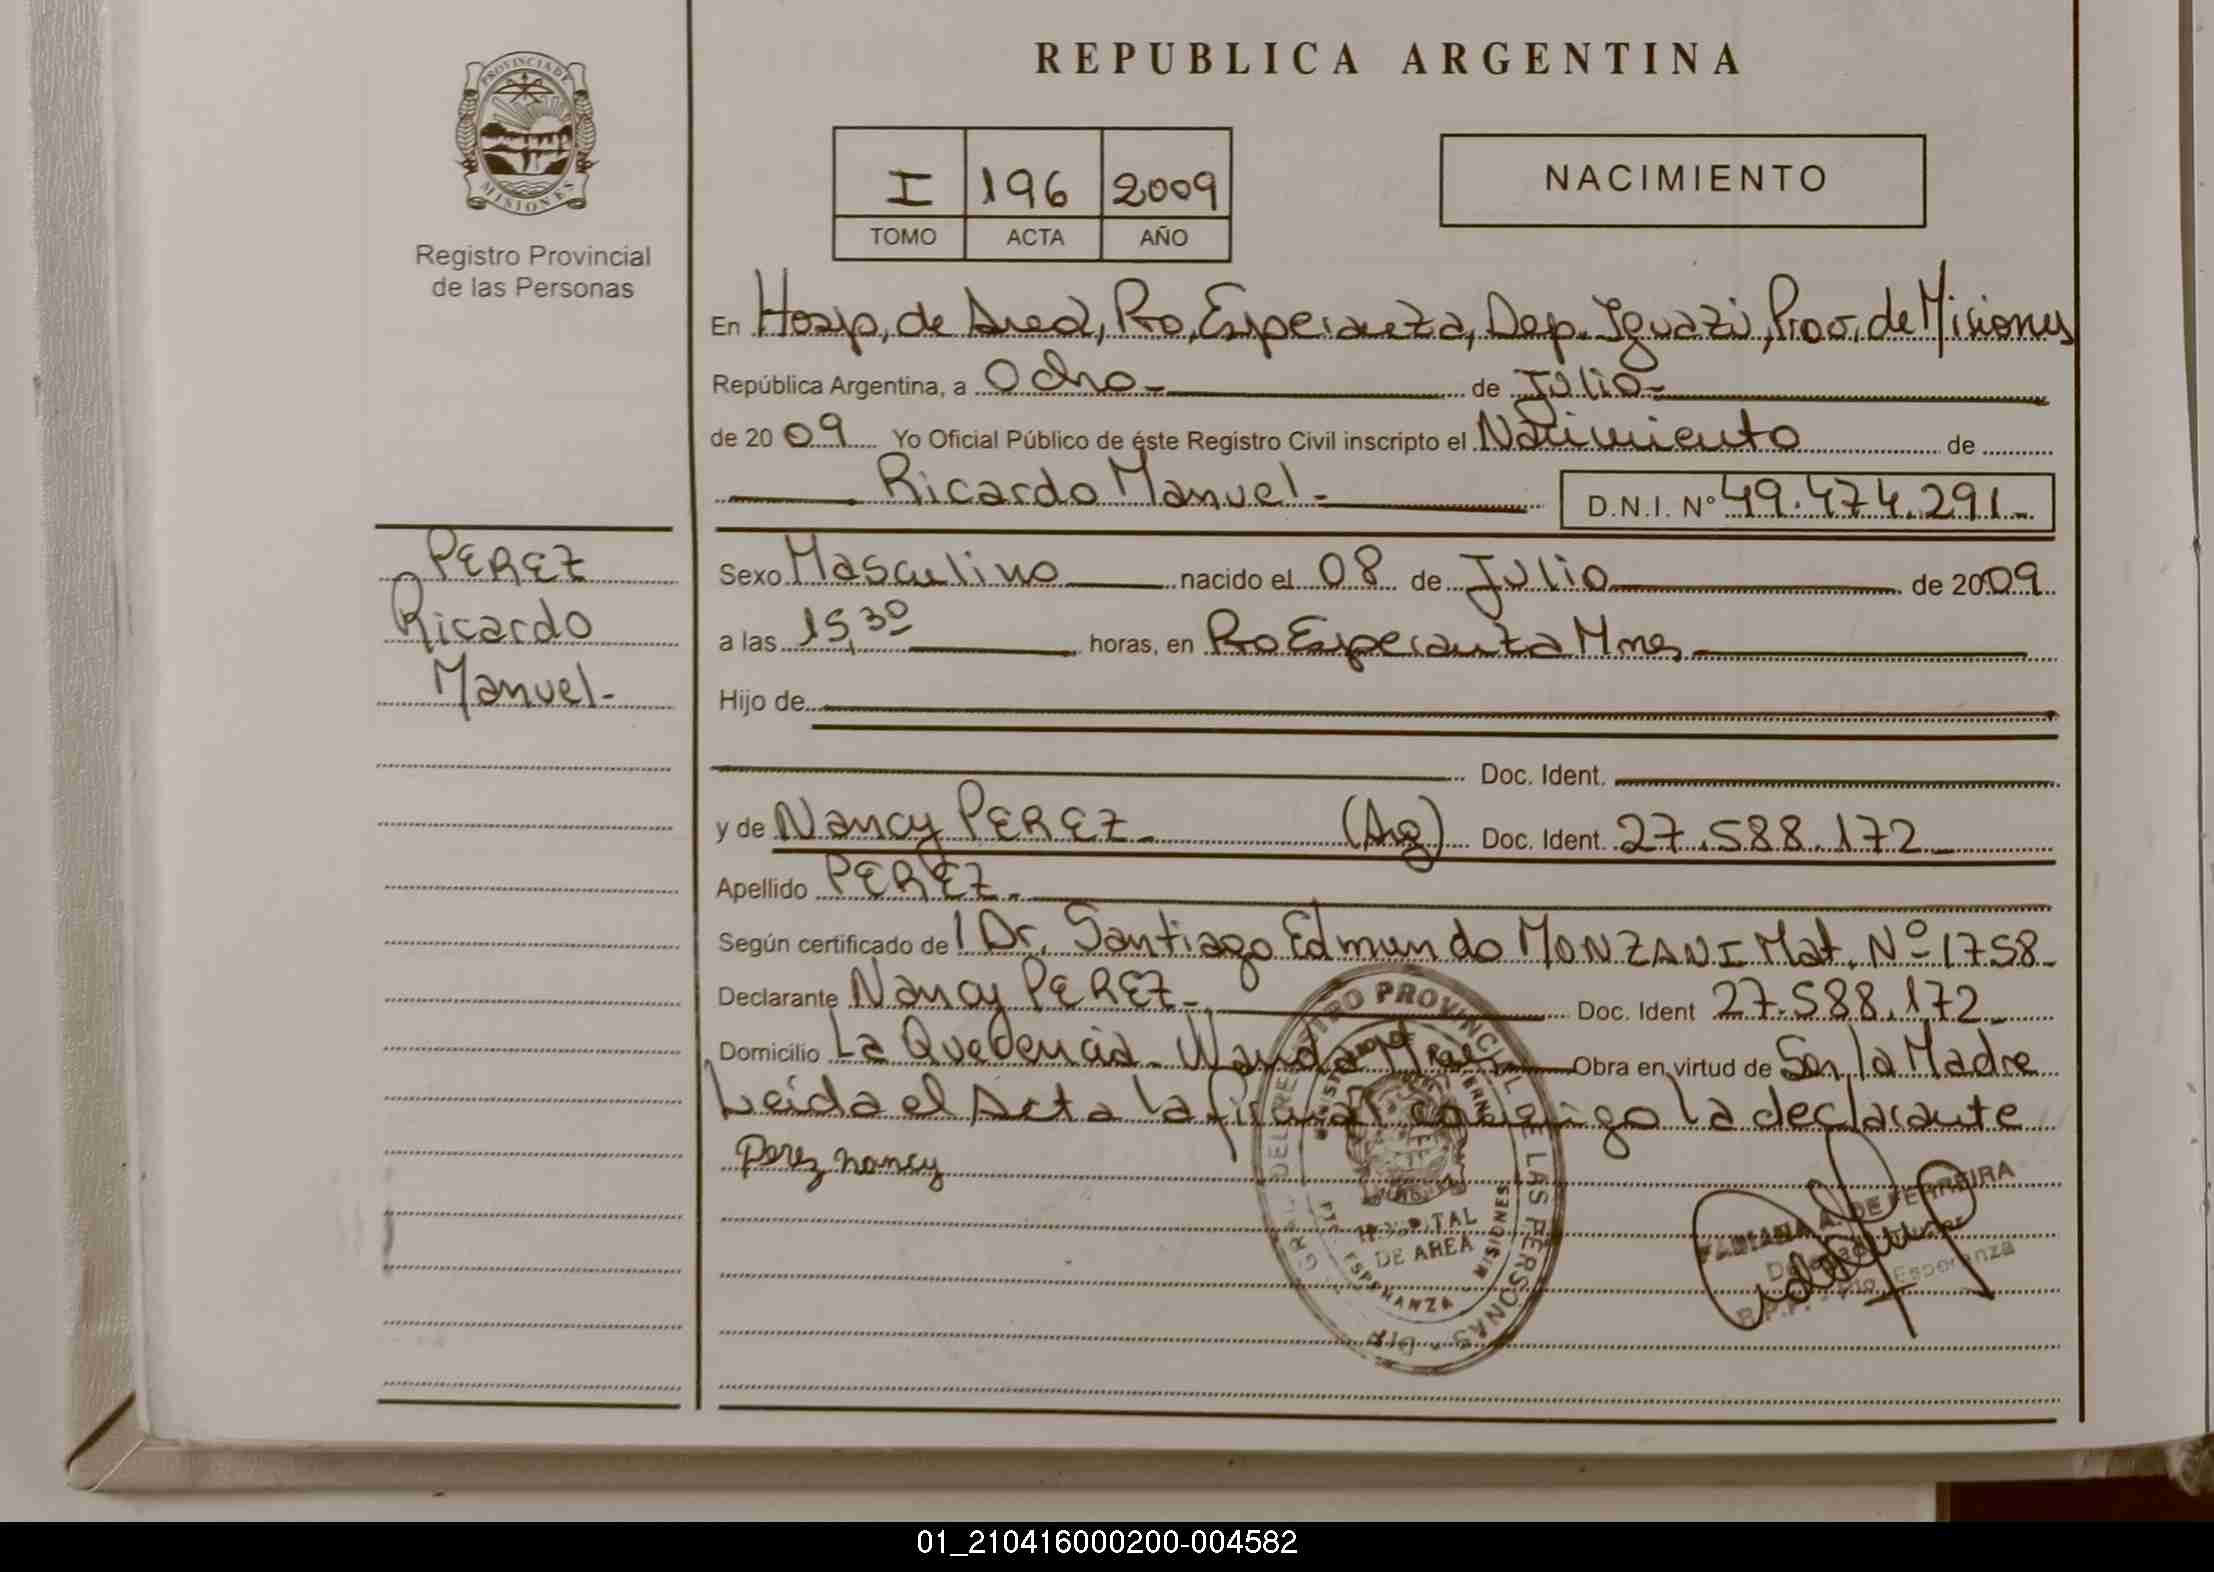 REPUBLICA ARGENTINA
PROVINCIA DE
MISIONES
Registro Provincial
de las Personas
I 196 2009
TOMO ACTA AÑO
NACIMIENTO
En Hosp, de Area, Pto, Esperanza, Dep. Iguazú, Prov. de Misiones
República Argentina, a Ocho.- de Julio.-
de 2009 Yo Oficial Público de éste Registro Civil inscripto el Nacimiento de
Ricardo Manuel.- D.N.I. Nº 49.474.291.-
PEREZ
Ricardo
Manuel.-
Sexo Masculino nacido el 08 de Julio de 2009
a las 15,30 horas, en Pto Esperanza Mnes
Hijo de
Doc. Ident.
y de Nancy PEREZ.- (Arg) Doc. Ident. 27.588.172.-
Apellido PEREZ.-
Según certificado de l Dr. Santiago Edmundo MONZANI Mat. Nº 1758-
Declarante Nancy PEREZ.- Doc. Ident 27.588.172.-
Domicilio La Querencia- Wanda Mnes Obra en virtud de Ser la Madre
Leída el Acta la firman conmigo la declarante
Perez nancy
REGISTRO PROVINCIAL DE LAS PERSONAS
HOSPITAL
DE AREA
PTO. ESPERANZA MISIONES
FABIANA A. DE FERREIRA
Delegada Titular
R.P.P. - Pto. Esperanza
01_210416000200-004582